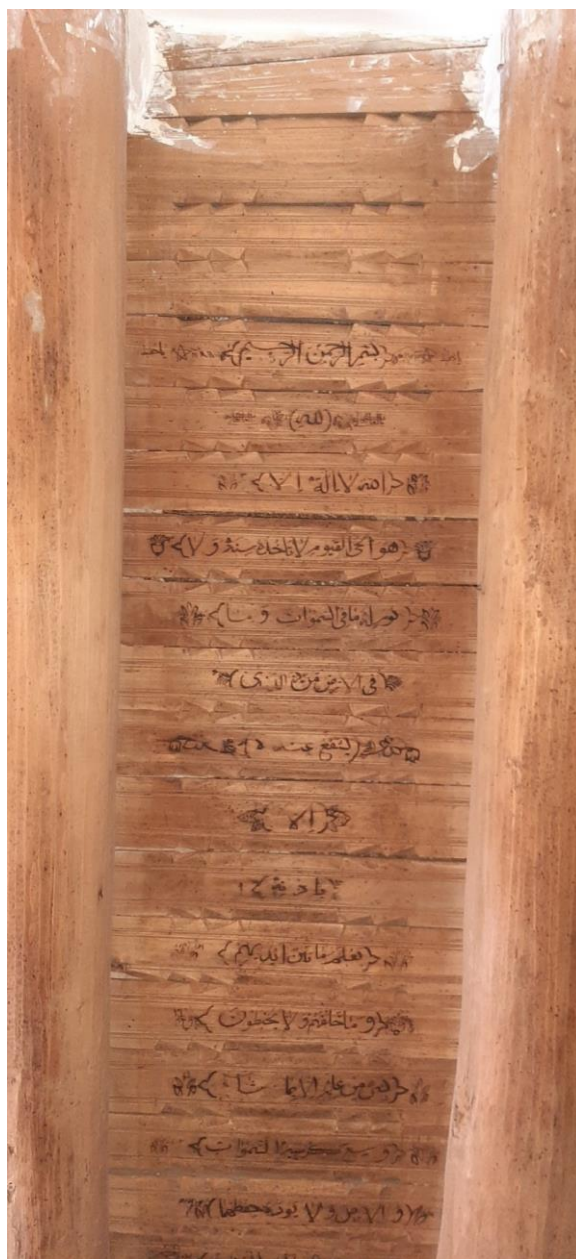 بسم الرحمن الرحيم
(لله)
الله لا اله الا
هو الحي القيوم لا تاخذه سنة و لا
نوم له ما في السموات و ما
في الارض من ذا الذي
يشفع عنده
الا
باذنه
يعلم ما بين ايديهم
و ما خلفهم و لا يحيطون
بشئ من علمه الا بما شاء
وسع كرسيه السموات
و الارض و لا يوده حفظهما